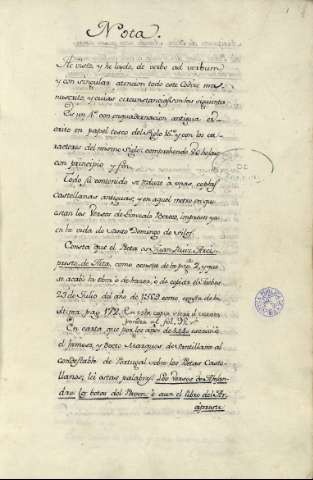 Nota.
He visto, y he leido, de verbo ad verbum
y con singular atencion todo este Codice ma-
nuscrito, y cuias circunstancias son las siguientes
Es un 4º con enquadernacion antigua es-
crito en papel tosco del siglo 16º y con los ca-
racteres del mismo siglo: comprehende 86 hojas
con principio y fin.
Todo su contenido se reduce à unas coplas
Castellanas antiguas, y en aquel metro en que
estan los Versos de Gonzalo Berceo, impresos ya
en la vida de Santo Domingo de Silos.
Consta que el Poeta es Juan Ruiz Arci-
preste de Hita, como consta de la pag. 2, y que
se acabó la obra ò de hacer, ò de copiar el Jueves
23 de Julio del año de
ultima pag. 172. En esta copia
fol. 92.
En carta que por los años de escrivió
el famoso, y Docto Marques de Santillana al
Condestable de Portugal sobre los Poetas Caste-
llanos, leí estas palabras: Los Versos de Alexan-
dro los botos del Pavon, è aun el libro del Ar-
cipreste